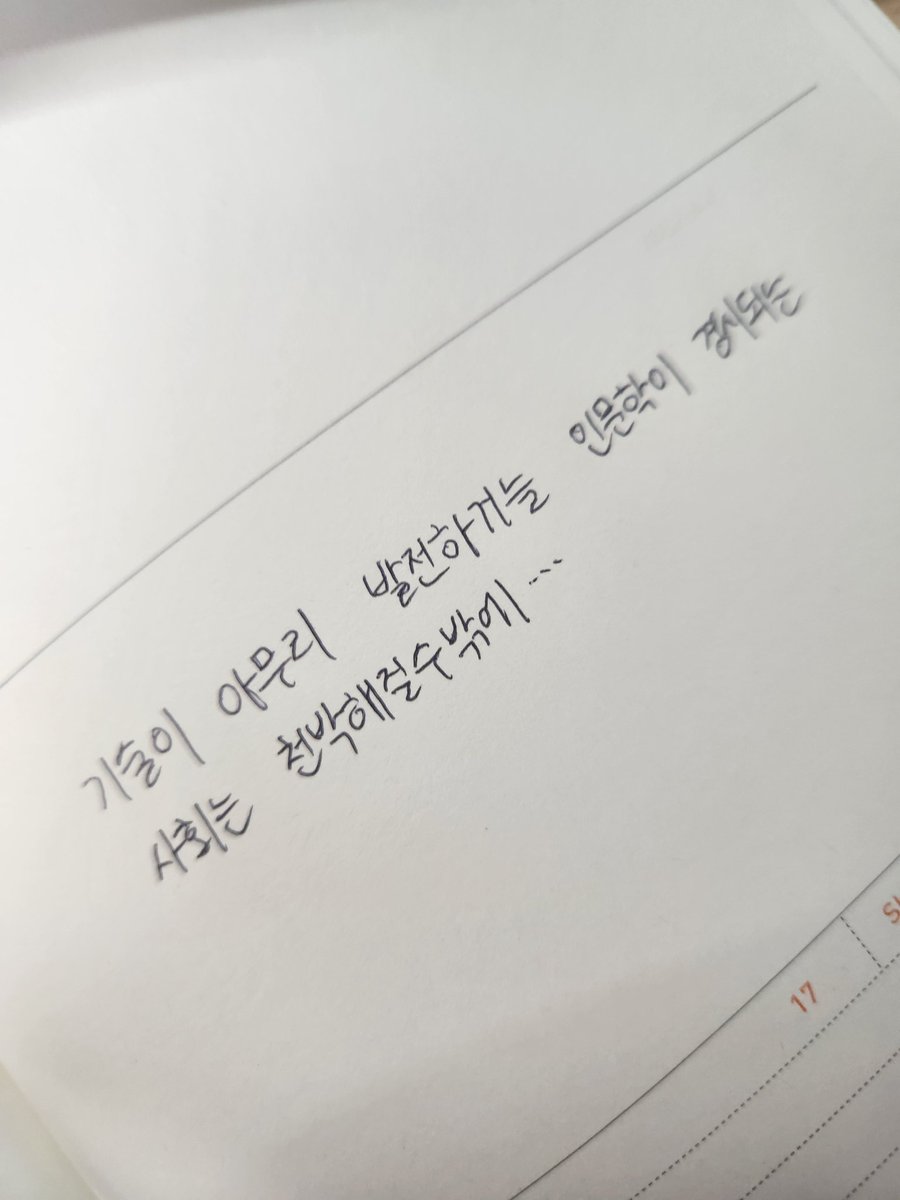 기술이 아무리 발전하거늘 인문학이 경시되는
사회는 천박해질수밖에...
17